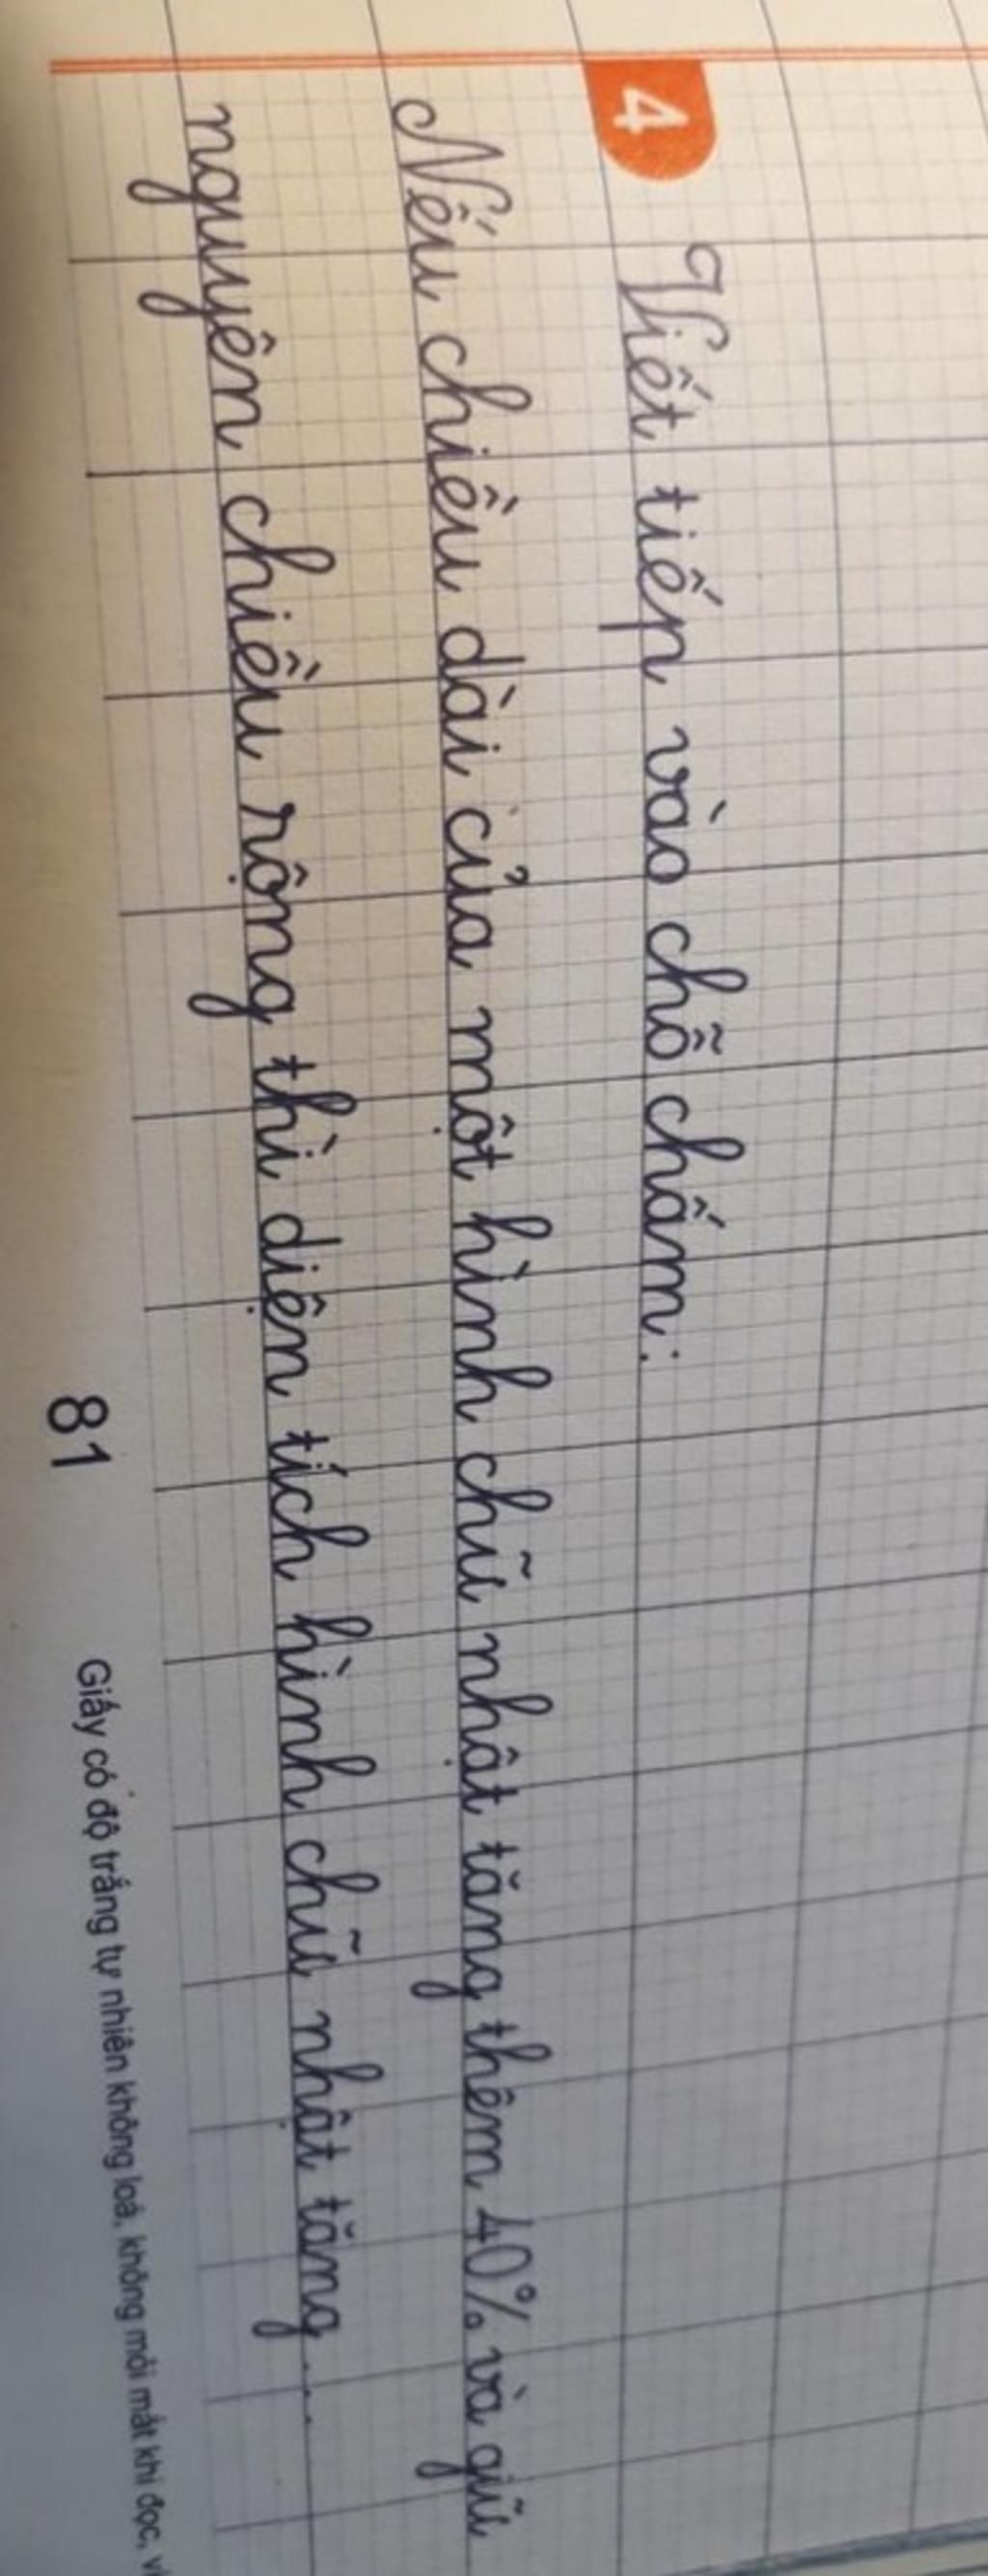 4 Viết tiếp vào chỗ chấm:
Nếu chiều dài của một hình chữ nhật tăng thêm 40% và giữ
nguyên chiều rộng thì diện tích hình chữ nhật tăng...
81 Giấy có độ trắng tự nhiên không loá, không mỏi mắt khi đọc,